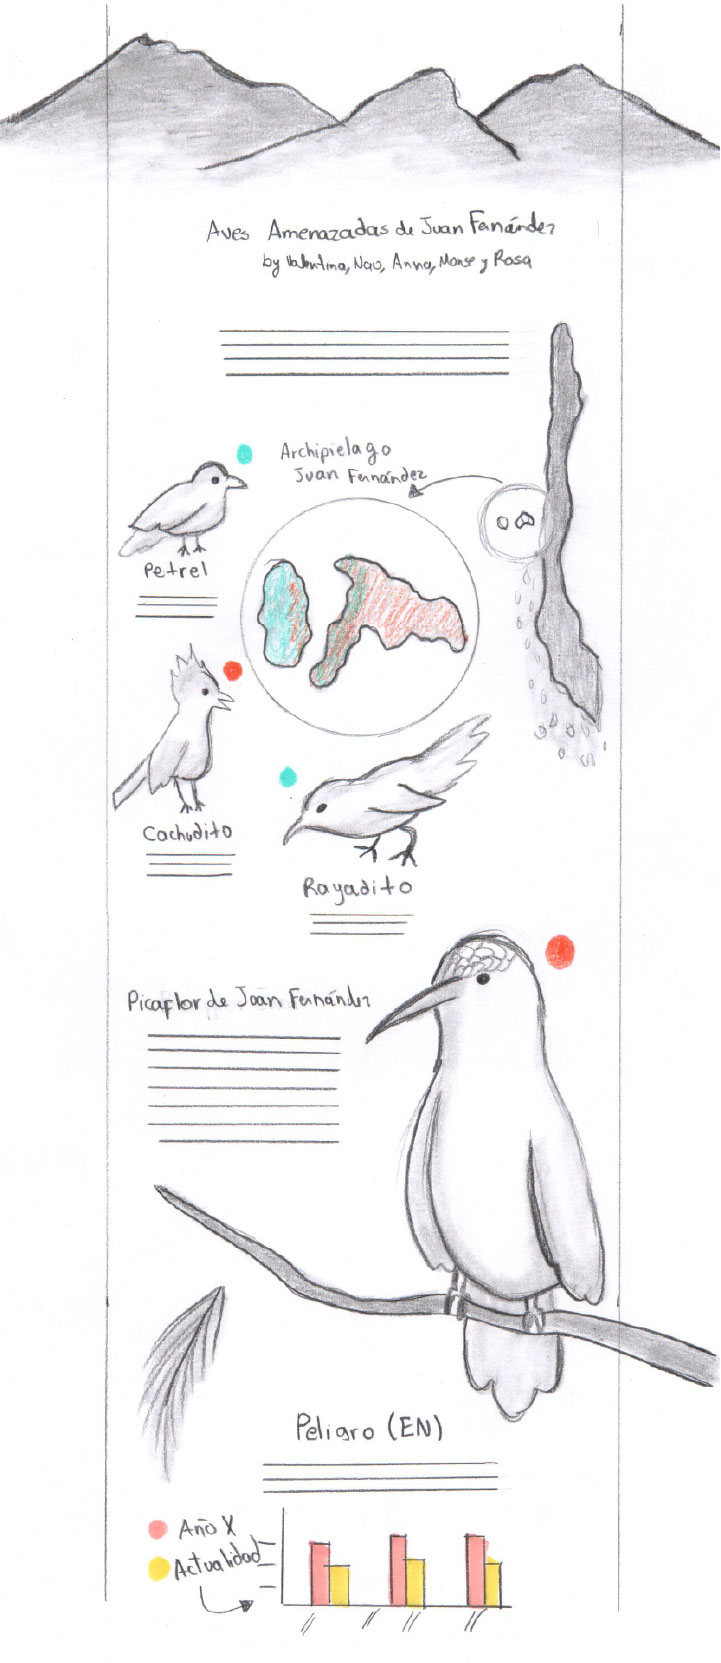 Aves Amenazadas de Juan Fernández
by Valentina, Nao, Anna, Monse y Rosa
Archipielago
Juan Fernández
Petrel
Cachudito
Rayadito
Picaflor de Juan Fernández
Peligro (EN)
Año X
Actualidad